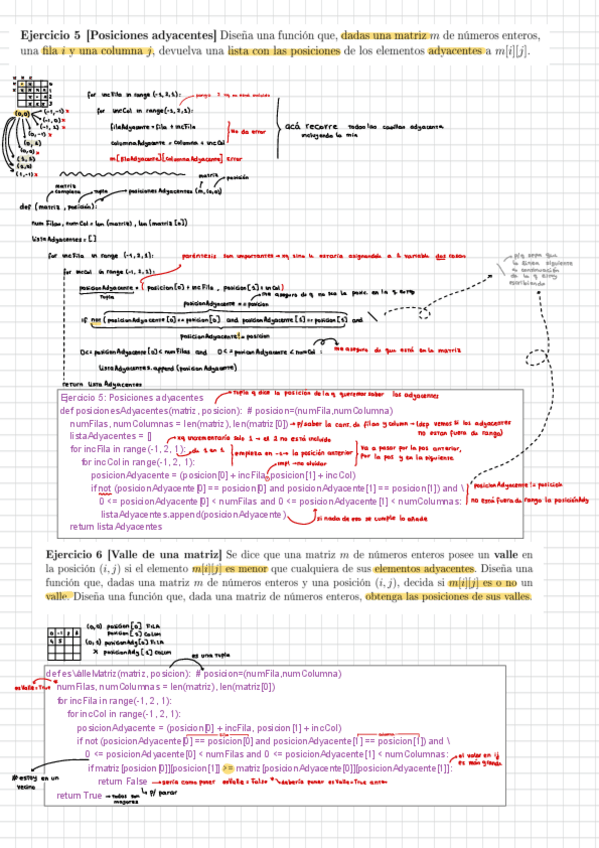 Ejercicio 5 [Posiciones adyacentes] Diseña una función que, dadas una matriz m de números enteros,
una fila i y una columna j, devuelva una lista con las posiciones de los elementos adyacentes a m[i][j].
for incFila in range (-1,2,1):
for incCol in range(-1,2,1):
filaAdyacente = fila + incFila
columnaAdyacente = columna + incCol
No da error
m[filaAdyacente][columnaAdyacente] error
acá recorre todas las casillas adyacentes
incluyendo la mía
(0,0)
(-1,-1) x
(-1,0) x
(-1,1) x
(0,-1) x
(0,1)
(1,-1) x
matriz
posición
matriz completa
tupla
posiciones Adyacentes (m,(0,0))
def (matriz, posicion):
num Filas, num Col = len (matriz), len (matriz [0])
lista Adyacentes = []
for inc Fila in range (-1,2,1):
paréntesis son importantes → xq sino le estaría asignando a 1 variable dos cosas
for incCol in range (-1,2,1):
posicionAdyacente = (posicion [0] + inc Fila, posicion [1] + incCol)
Tupla
me aseguro de q no sea la posic. en la q estoy
posicionAdyacente == posicion
if not (posicionAdyacente [0] == posicion [0] and posicionAdyacente [1] == posicion [1]) and \
posicionAdyacente != posicion
0 <= posicionAdyacente [0] < numFilas and 0 <= posicionAdyacente < numCol :
me aseguro de que está en la matriz
listaAdyacentes.append (posicionAdyacente)
return lista Adyacentes
Ejercicio 5: Posiciones adyacentes
tupla q dice la posición de la q queremos saber los adyacentes
def posicionesAdyacentes(matriz, posicion): # posicion=(numFila,numColumna)
numFilas, numColumnas = len(matriz), len(matriz[0])
p/saber la cant. de filas y column → (dep vemos si los adyacentes
no estan fuera de rango)
listaAdyacentes = []
xq incrementaría solo 1 → el 2 no está incluido
for incFila in range(-1, 2, 1):
de 1 en 1
empieza en -1 → la posición anterior
Va a pasar por la pos anterior,
por la pos y en la siguiente
for incCol in range(-1, 2, 1):
imp! → no olvidar
posicionAdyacente = (posicion[0] + incFila, posicion[1] + incCol)
if not (posicionAdyacente [0] == posicion[0] and posicionAdyacente [1] == posicion[1]) and \
posicionAdyacente != posicion
0 <= posicionAdyacente[0] < numFilas and 0 <= posicionAdyacente[1] < numColumnas:
no está fuera de rango la posicionAdy
listaAdyacentes.append(posicionAdyacente )
si nada de eso se cumple lo añade
return listaAdyacentes
Ejercicio 6 [Valle de una matriz] Se dice que una matriz m de números enteros posee un valle en
la posición (i, j) si el elemento m[i][j] es menor que cualquiera de sus elementos adyacentes. Diseña una
función que, dadas una matriz m de números enteros y una posición (i, j), decida si m[i][j] es o no un
valle. Diseña una función que, dada una matriz de números enteros, obtenga las posiciones de sus valles.
(0,0) posicion [0] FILA
posicion [1] COLUM
posicionAdy [0] FILA
posicionAdy [1] COLUM
es una tupla
def esValleMatriz(matriz, posicion): # posicion=(numFila,numColumna)
esValle=True
numFilas, numColumnas = len(matriz), len(matriz[0])
for incFila in range(-1, 2, 1):
for incCol in range(-1, 2, 1):
posicionAdyacente = (posicion[0] + incFila, posicion[1] + incCol)
if not (posicionAdyacente[0] == posicion[0] and posicionAdyacente[1] == posicion[1]) and \
0 <= posicionAdyacente[0] < numFilas and 0 <= posicionAdyacente[1] < numColumnas:
el valor en ij
es más grande
if matriz [posicion [0]][posicion[1]] >= matriz [posicionAdyacente[0]][posicionAdyacente[1]]:
# estoy en un
vecino
return False
sería como poner esValle = False
debería poner esValle=True antes
p/ parar
return True
todos son
mayores